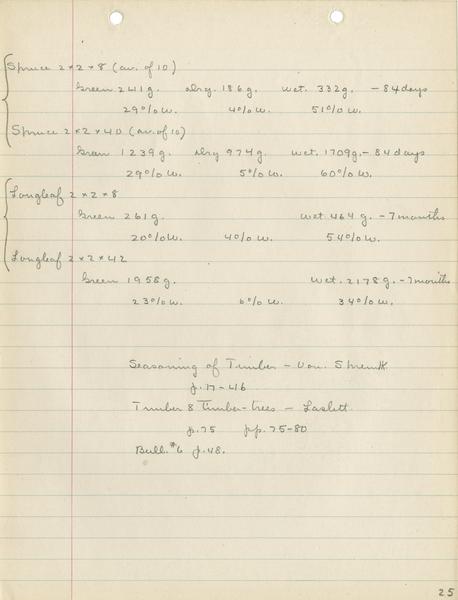 Spruce 2 x 2 x 8 (av. of 10)
Green 241g. dry 186g. wet. 332g. - 84 days
29% w. 4% w. 51% w.
Spruce 2 x 2 x 40 (av. of 10)
Green 1239g. dry 974g. wet. 1709g. - 84 days
29% w. 5% w. 60% w.
Longleaf 2 x 2 x 8
Green 261g. wet 464g. - 7 months
20% w. 4% w. 54% w.
Longleaf 2 x 2 x 42
Green 1958g. wet. 2178g. - 7 months
23% w. 6% w. 34% w.
Seasoning of Timber - Von. Shrenk
p. 17-46
Timber & Timber-trees - Laslett.
p. 75 pp. 75-80
Bull. #6 p. 48.
25